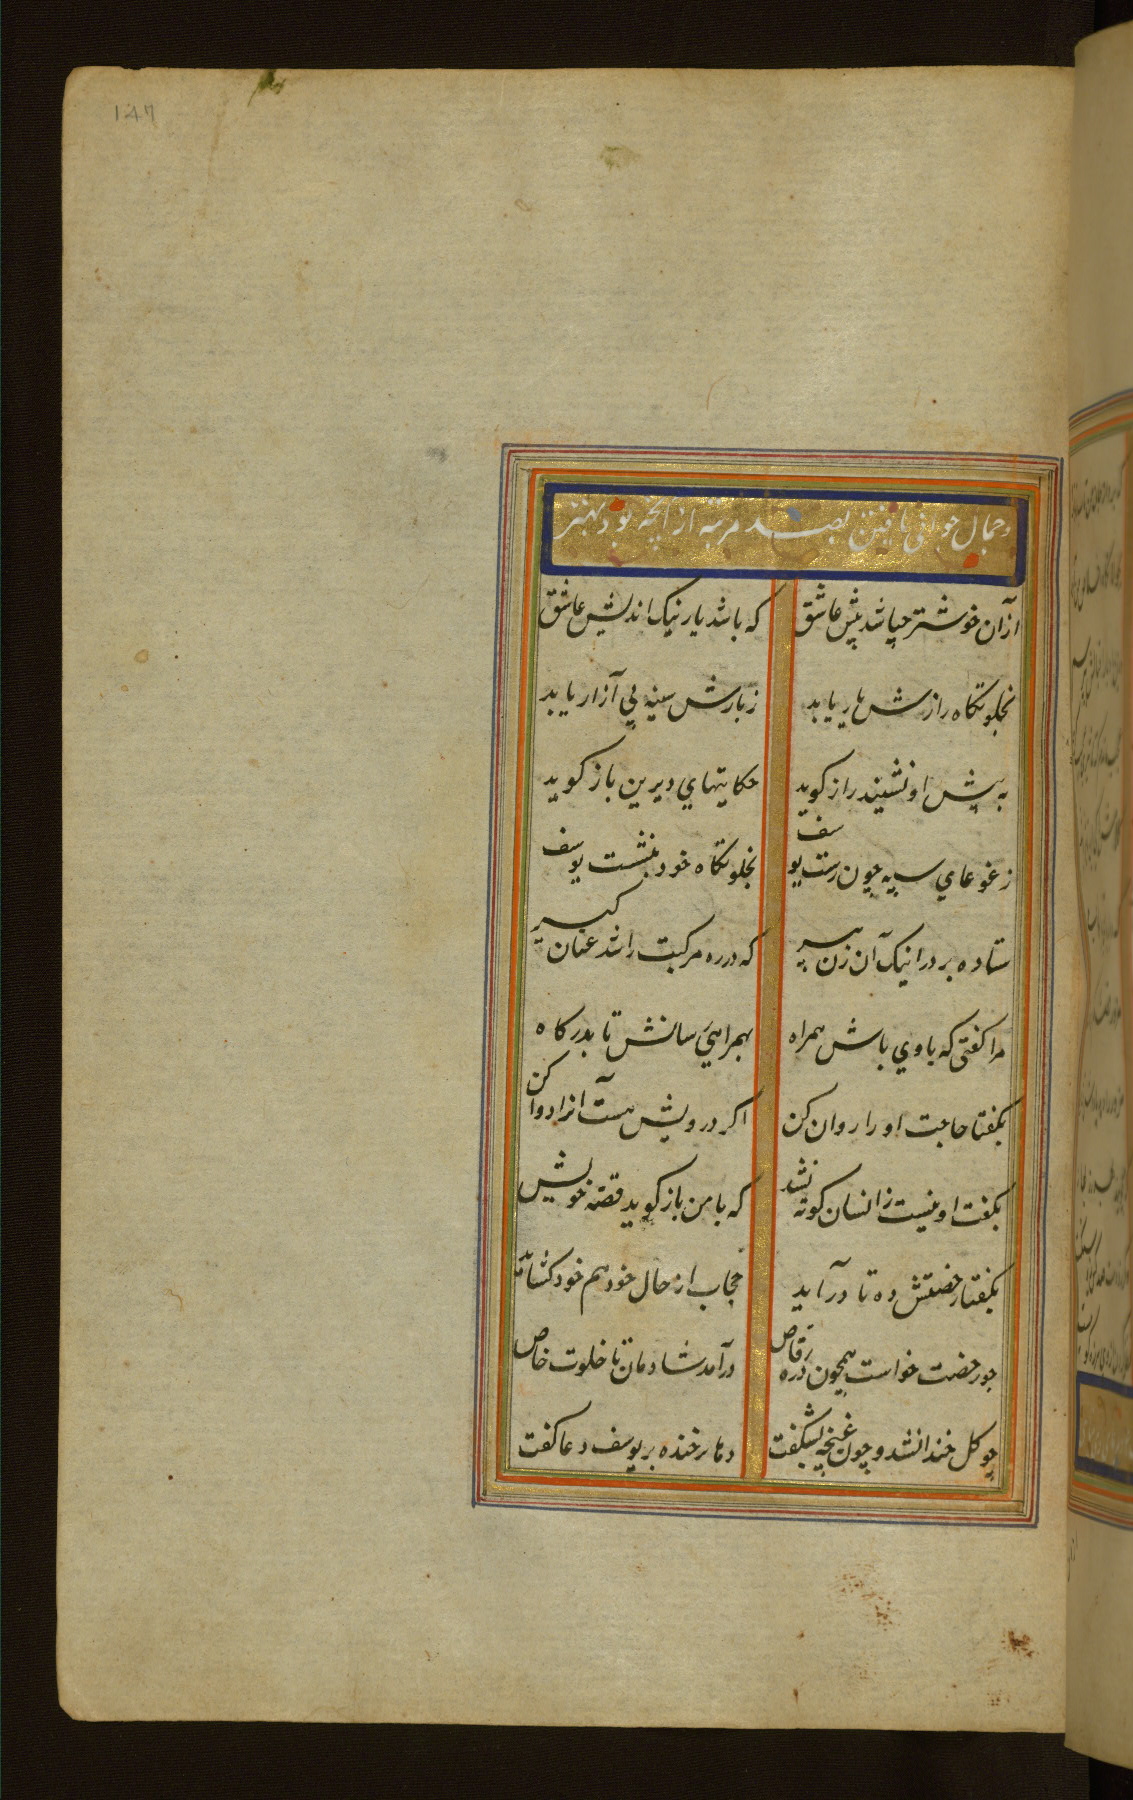 147
و جمال جوانی یافتن بصد مرتبه از آنچه بود بهتر
از آن خوشتر چپاشد پیش عاشق که باشد یار نیک اندیش عاشق
بخلوتکاه رازش بار یابد ز بارش سینه بی آزار یابد
به پیش او نشیند راز کوید حکایتهای دیرین باز کوید
ز غوغای سپه چون رست یوسف بخلوتکاه خود بنشست یوسف
ستاده بر در اینک آن زن پیر که در ره مرکبت را شد عنان کیر
مرا کفتی که با وی باش همراه بهمراهی سانش تا بدرکاه
بکفتا حاجت او را روان کن اکر درویش هست آنرا دوا کن
بکفت او نیست ز انسان کوته اندیش که با من باز کوید قصه خویش
بکفتا رخصتش ده تا درآید حجاب از حال خود هم خود کشاید
چو رخصت خواست همچون ذره رقاص درآمد شادمان تا خلوت خاص
چو کل خندان شد و چون غنچه بشکفت دهان پر خنده بر یوسف دعا کفت